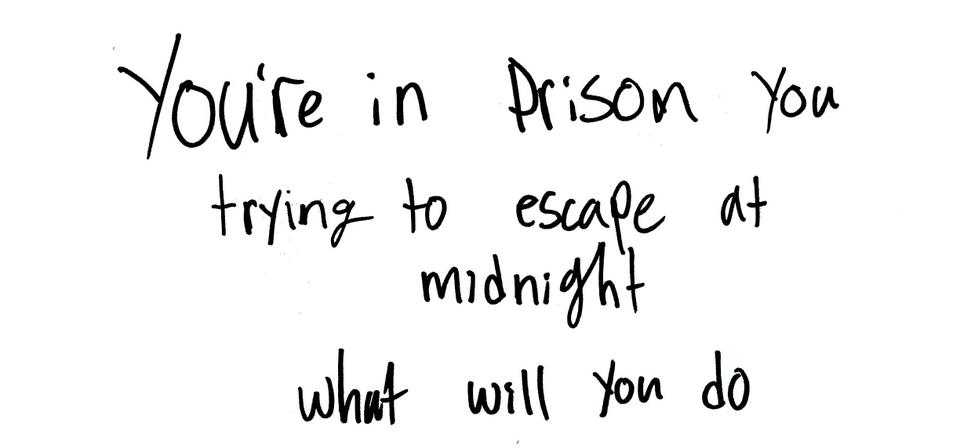 You're in prison you
trying to escape at
midnight
what will you do